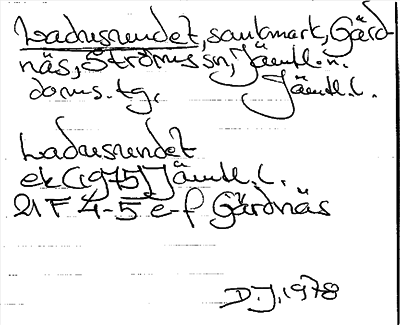 Ladusrundet, sankmark, Gärd-
näs, Ströms sn, Jämtl. n.
doms. tg. Jämtl. l.
Ladusrundet
ek (1975) Jämtl. l.
21 F 4-5 e-f Gärdnäs
D.J. 1978